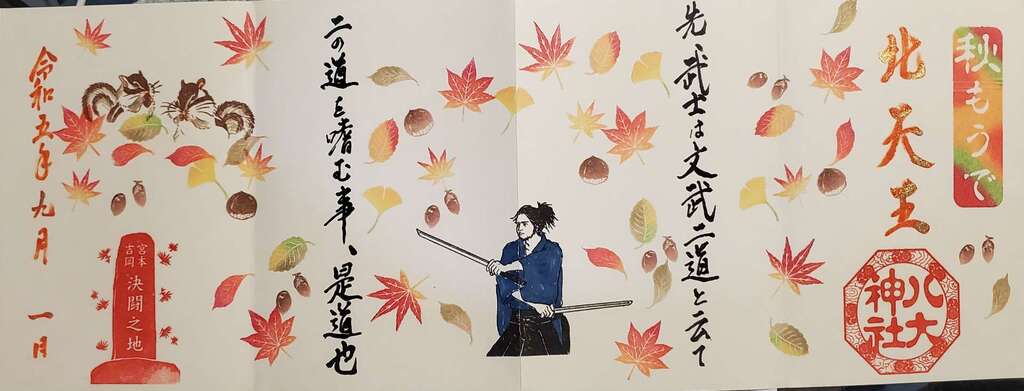 秋もうで
北天王
八大神社
先、武士は文武二道と云て
二の道を嗜む事、是道也
宮本
吉岡
決闘之地
令和五年九月一日